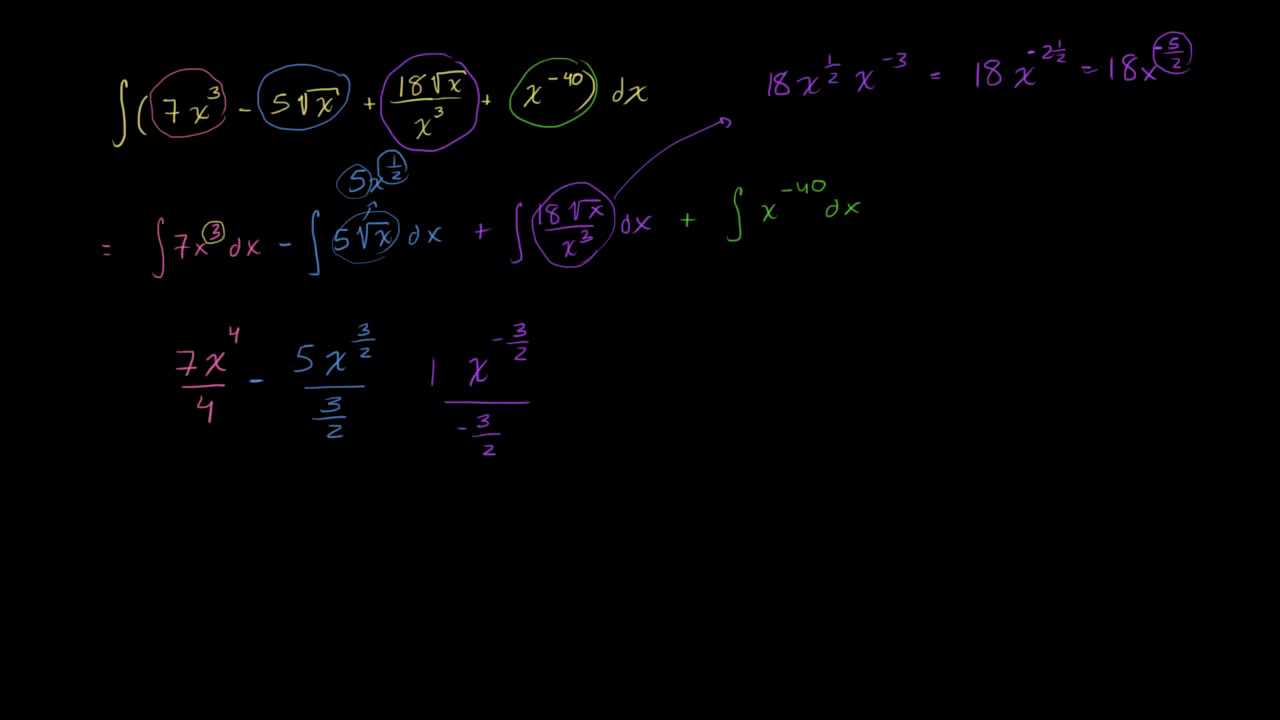 ∫(7x³ - 5√x + 18√x/x³ + x⁻⁴⁰) dx
18x^(1/2) x⁻³ = 18x^(-2 1/2) = 18x^(-5/2)
5x^(1/2)
= ∫7x³dx - ∫5√x dx + ∫18√x/x³ dx + ∫x⁻⁴⁰dx
7x⁴/4 - 5x^(3/2)/(3/2) 1 x^(-3/2)/(-3/2)